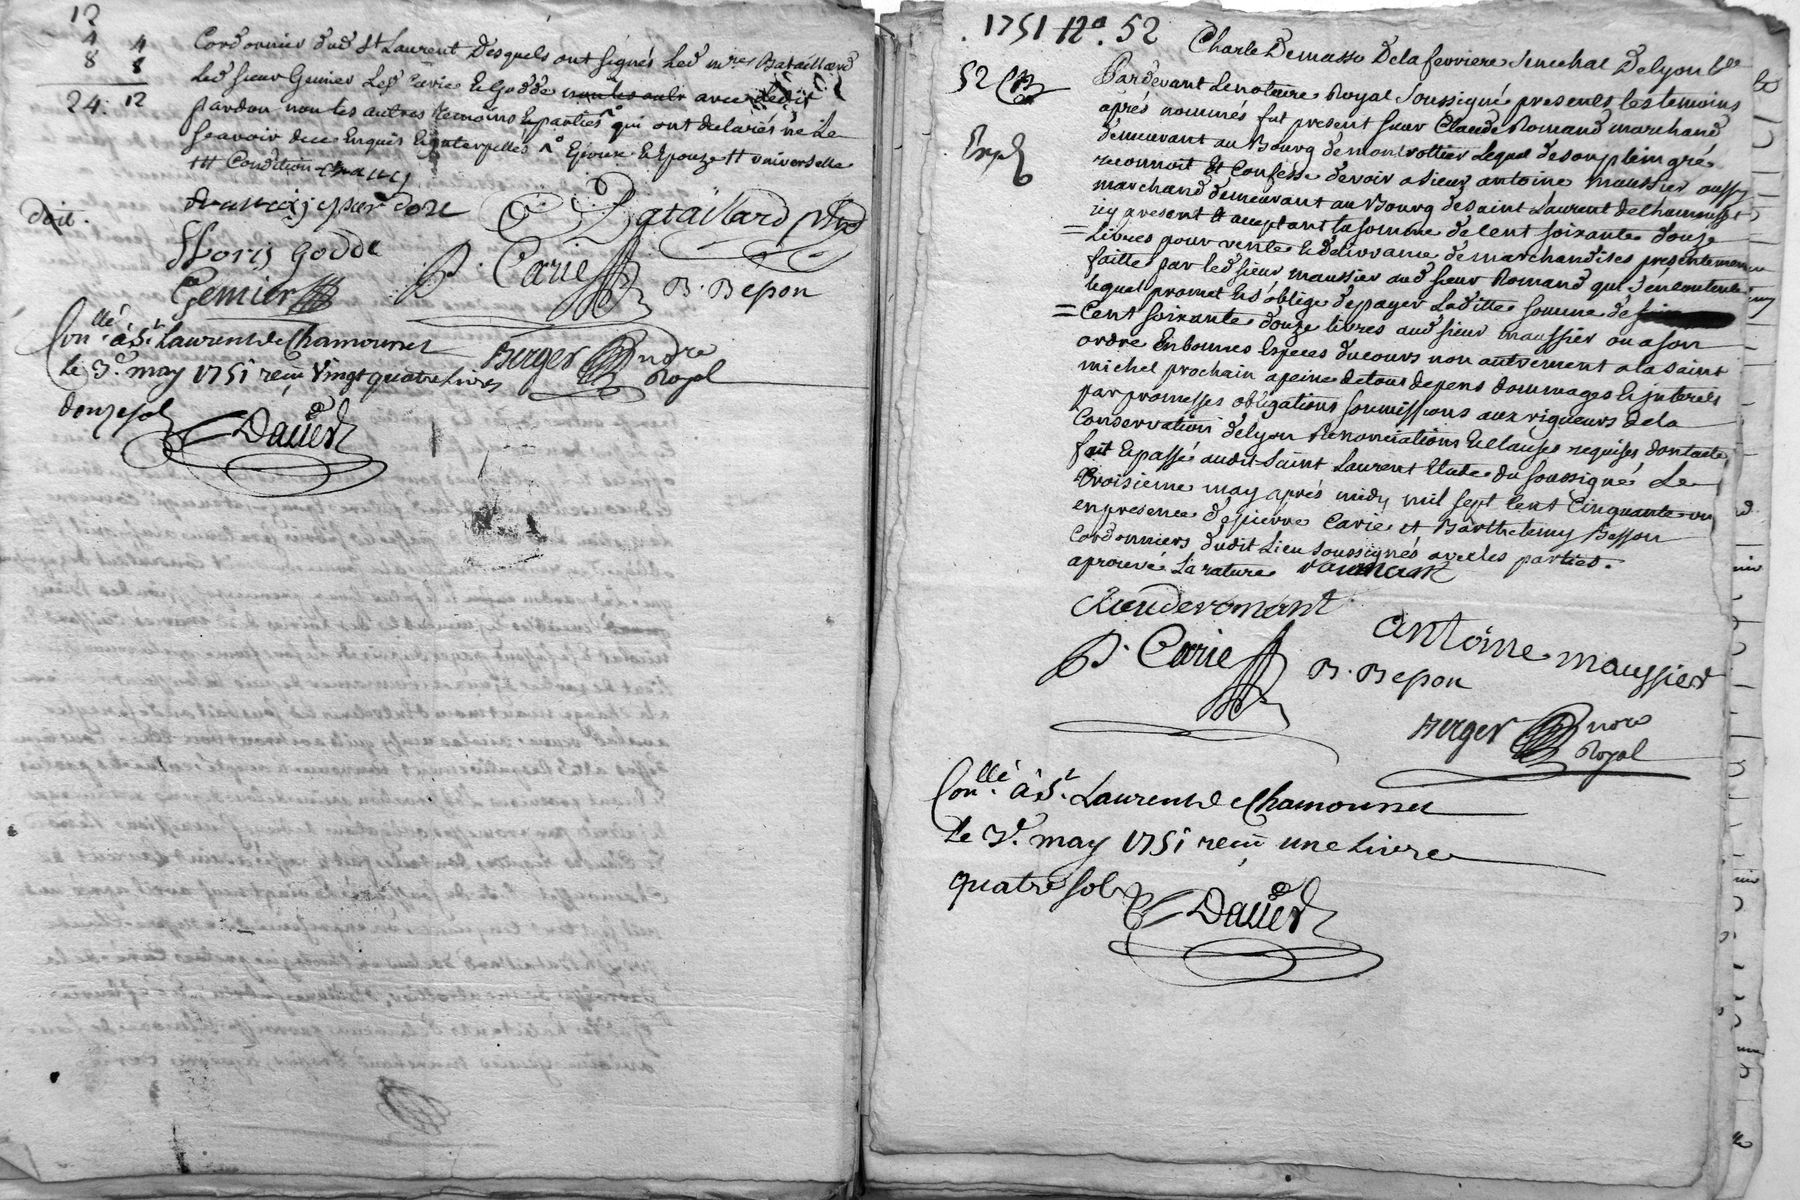 12
4 4
8 8
24. 12
Cordonnier dud St Laurent Desquels ont signés Led mres Bataillard
Led sieur Genier Led Carie & Godde avec
pardon non les autres temoins & parties qui ont declarés ne le
scavoir dece Enquis & interpellés Epouse universelle
Condition
doit.
Bataillard
Floris godde
P. Carie
B. Bepon
Gemier
Conllé à St. Laurent de Chamousset
le 3e. may 1751 reçu Vingt quatre Livres
donze sols
Berger nore
Royal
Dauier
1751 No. 52
Charle Demasso Delaferriere Senechal Delyon
52
Expé
Pardevant Lenotaire Royal Soussigné presents les temoins
aprés nommés fut present sieur Claude Romand marchand
demeurant au Bourg demontrottier Lequel deson plein gré
reconnoit Et Confesse devoir a sieur antoine maussier aussy
marchand demeurant au Bourg desaint Laurent dechamousset
icy present & acceptant la somme de Cent soixante douze
= Livres pour vente & delivrance demarchandises presentement
faitte par led sieur maussier aud sieur Romand qui s'encontente
lequel promet & s'oblige depayer Laditte somme de
= Cent soixante douze livres aud sieur maussier ou a son
ordre En bonnes Especes ducours non autrement a la saint
michel prochain apeine detous depens dommages & interets
par promesses obligations soumissions aux rigueurs dela
Conservation delyon Renonciations & Clauses requises dont acte
fait & passé audit Saint Laurent Etude du soussigné Le
troisieme may aprés midy mil sept Cent Cinquante un
enpresence depierre Carié et Barthelemy Besson
Cordonniers dudit Lieu soussignés avec les parties.
aprouvé La rature
Claude romant
antoine maussier
P. Carie
B. Bepon
Berger nore
Royal
Conllé à St. Laurent de Chamousset
le 3e. may 1751 reçu une Livre
quatre sols
Dauier